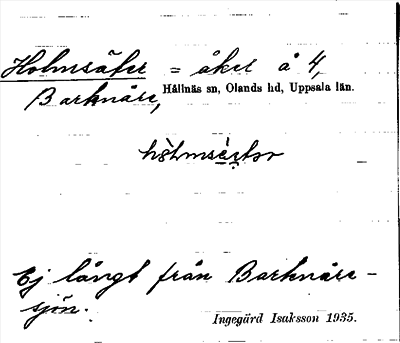 Holmsäker = åker å 4,
Barknåre, Hållnäs sn, Olands hd, Uppsala län.
Ej långt från Barknåre-
sjön.
Ingegärd Isaksson 1935.